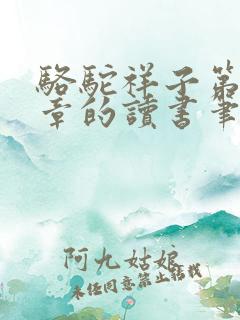 駱駝祥子第
章的讀書筆
阿九姑娘
未经同意禁止转载